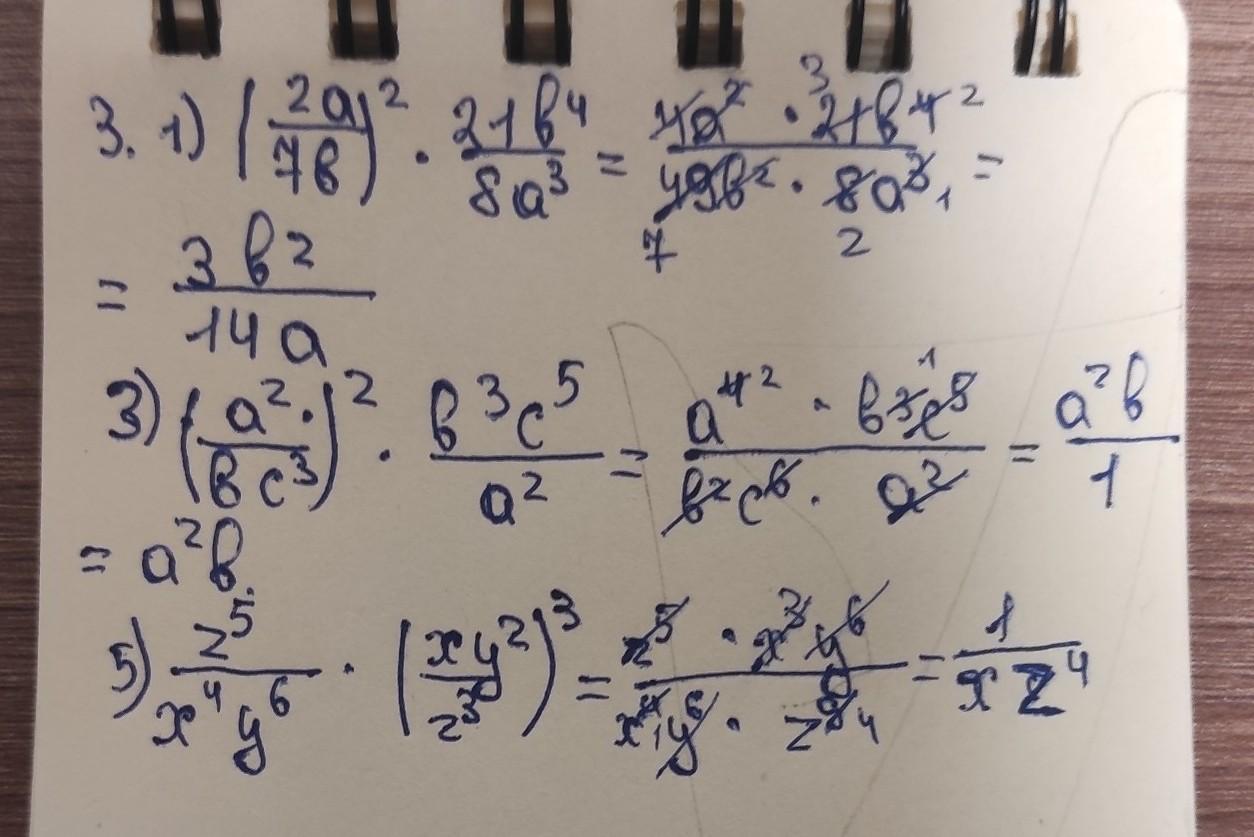 3. 1) (2a/7b)² · 21b⁴/8a³ = 4a² · 21b⁴/49b² · 8a³ =
= 3b²/14a
3) (a²·/bc³)² · b³c⁵/a² = a⁴ · b³c⁵/b²c⁶ · a² = a²b/1
= a²b
5) z⁵/x⁴y⁶ · (xy²/z³)³ = z⁵ · x³y⁶/x⁴y⁶ · z⁹ = 1/xz⁴